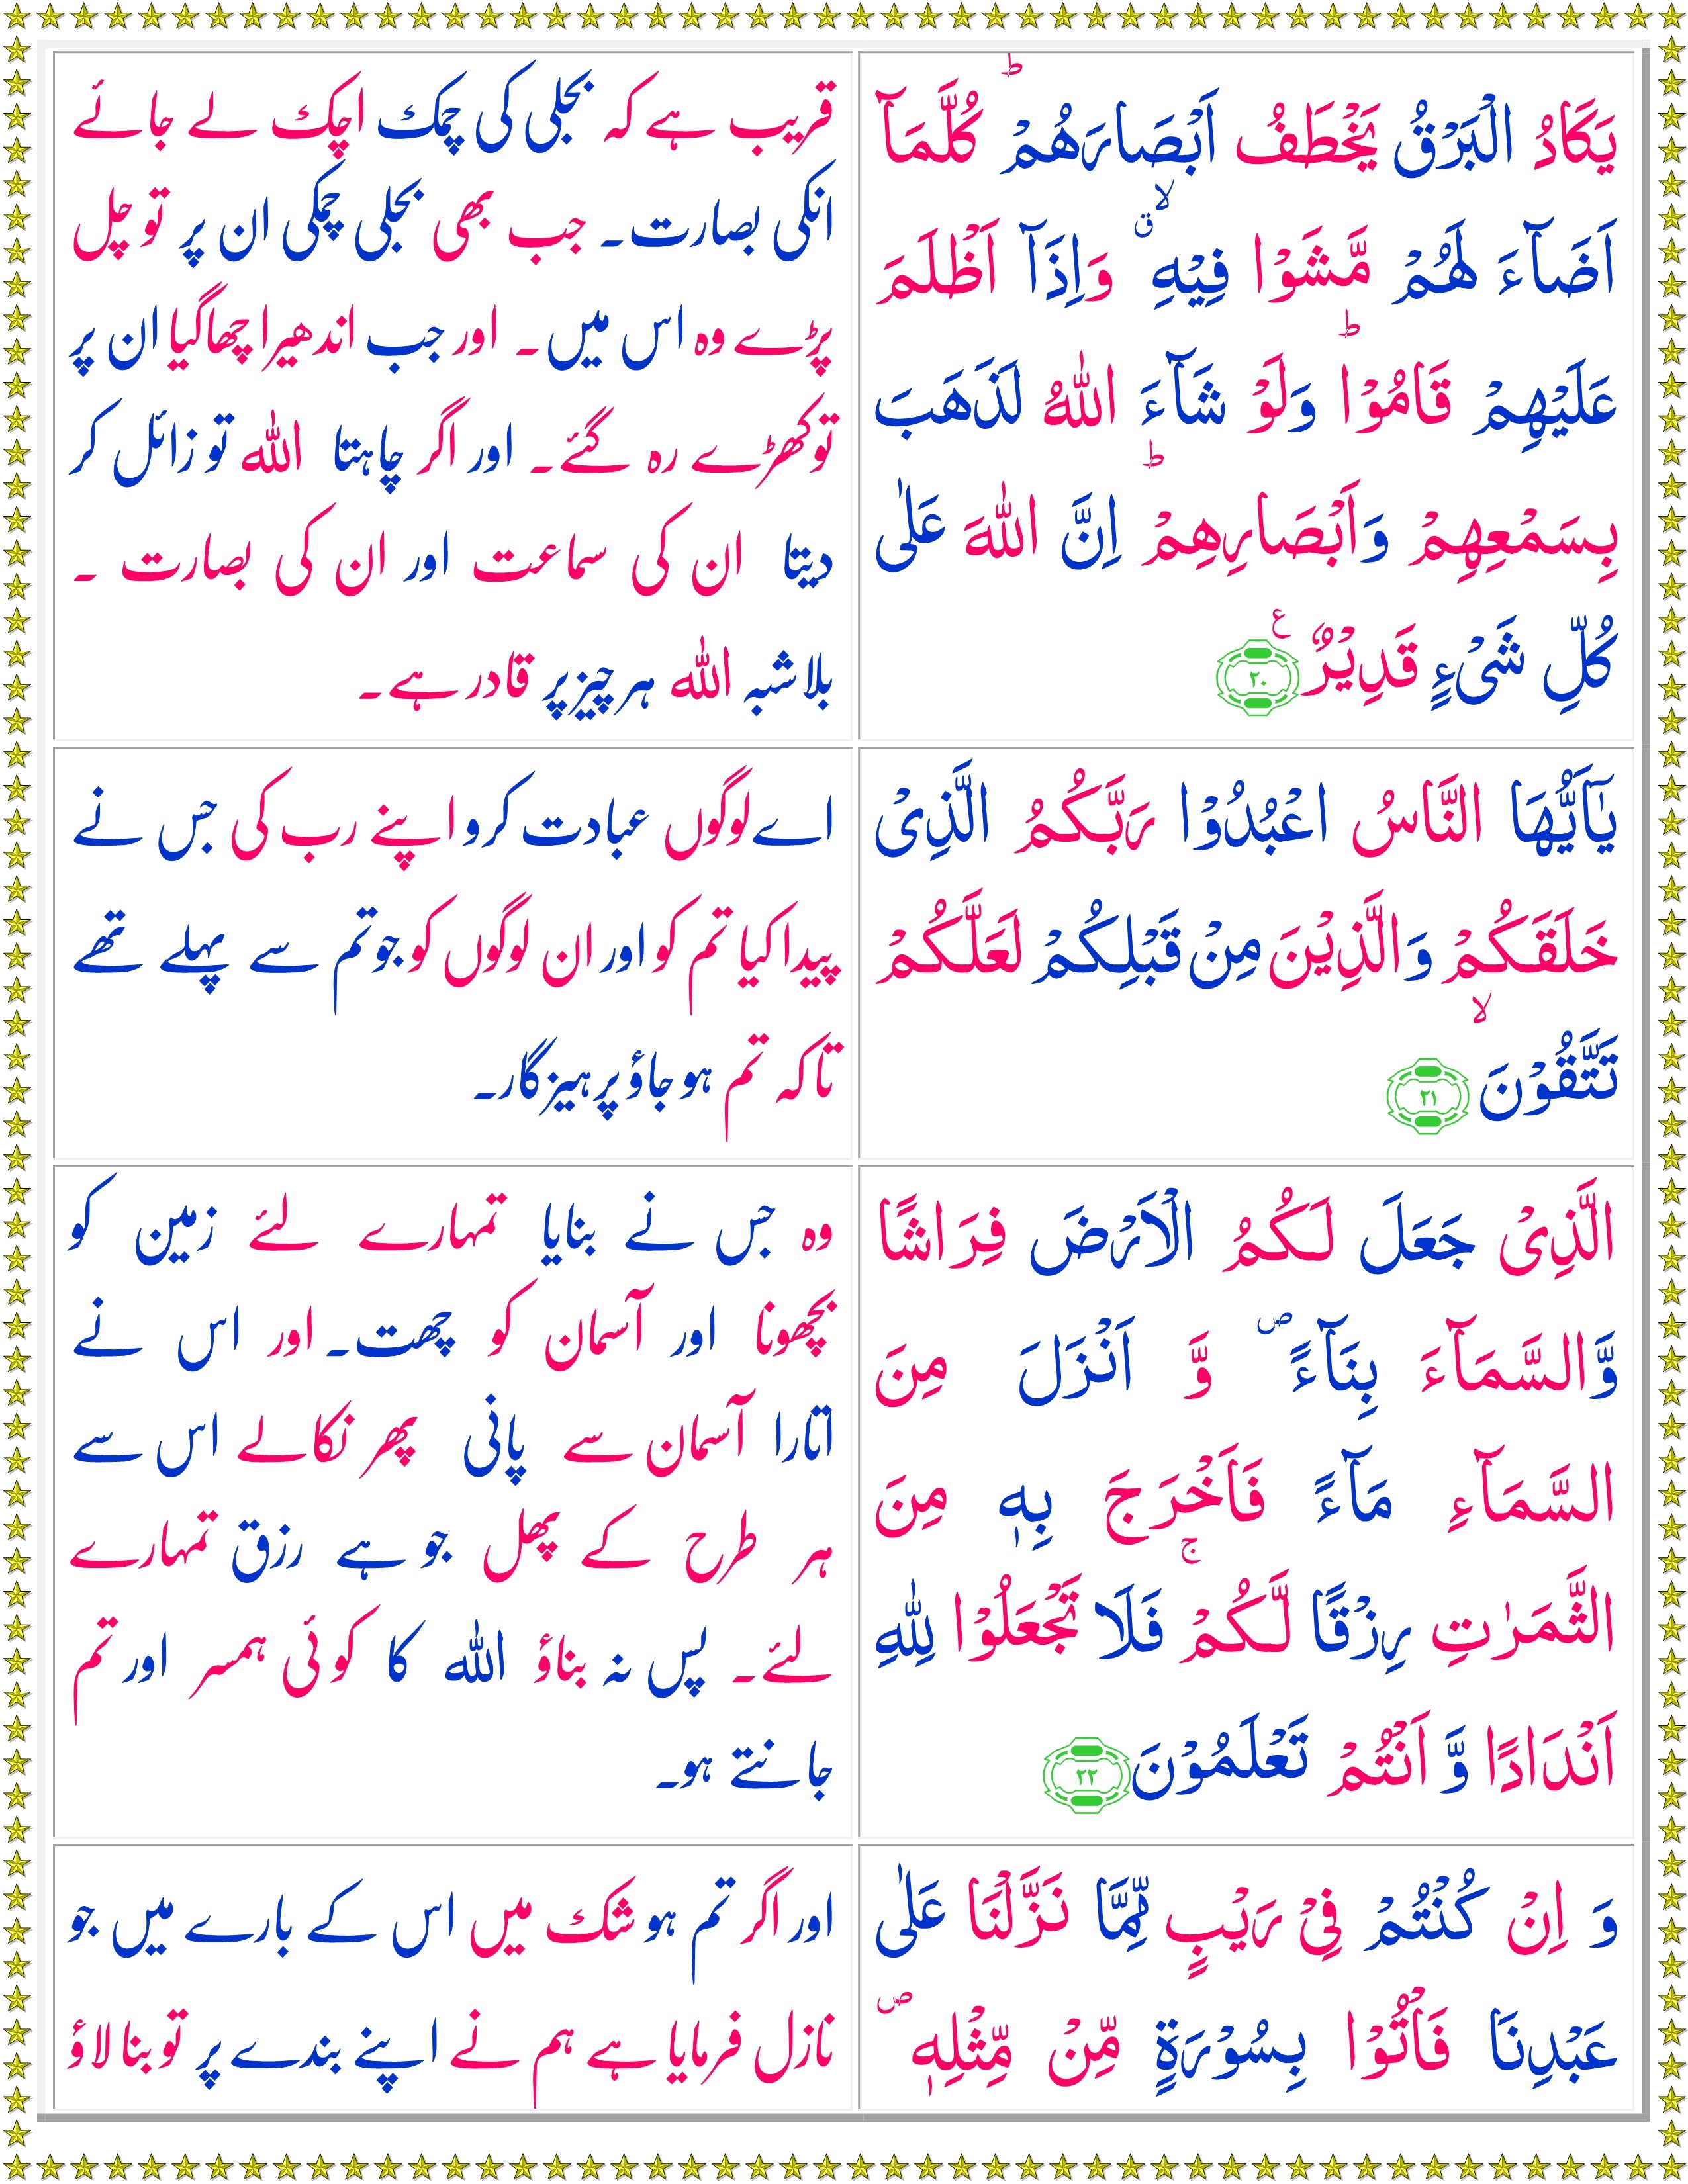 يَكَادُ الْبَرْقُ يَخْطَفُ اَبْصَارَهُمْ ؕ كُلَّمَاۤ
اَضَآءَ لَهُمْ مَّشَوْا فِيْهِ ۙۗ وَاِذَاۤ اَظْلَمَ
عَلَيْهِمْ قَامُوْا ؕ وَلَوْ شَآءَ اللّٰهُ لَذَهَبَ
بِسَمْعِهِمْ وَاَبْصَارِهِمْ ؕ اِنَّ اللّٰهَ عَلٰى
كُلِّ شَىْءٍ قَدِيْرٌ ۧ ۲۰
قریب ہے کہ بجلی کی چمک اچک لے جائے
انکی بصارت۔ جب بھی بجلی چمکی ان پر تو چل
پڑے وہ اس میں۔ اور جب اندھیرا چھا گیا ان پر
تو کھڑے رہ گئے۔ اور اگر چاہتا اللہ تو زائل کر
دیتا ان کی سماعت اور ان کی بصارت ۔
بلا شبہ اللہ ہر چیز پر قادر ہے۔
يٰۤاَيُّهَا النَّاسُ اعْبُدُوْا رَبَّكُمُ الَّذِىْ
خَلَقَكُمْ وَالَّذِيْنَ مِنْ قَبْلِكُمْ لَعَلَّكُمْ
تَتَّقُوْنَ ۙ ۲۱
اے لوگوں عبادت کرو اپنے رب کی جس نے
پیدا کیا تم کو اور ان لوگوں کو جو تم سے پہلے تھے
تاکہ تم ہو جاؤ پرہیزگار۔
الَّذِىْ جَعَلَ لَكُمُ الْاَرْضَ فِرَاشًا
وَّالسَّمَآءَ بِنَآءً ۪ وَّ اَنْزَلَ مِنَ
السَّمَآءِ مَآءً فَاَخْرَجَ بِهٖ مِنَ
الثَّمَرٰتِ رِزْقًا لَّكُمْ ۚ فَلَا تَجْعَلُوْا لِلّٰهِ
اَنْدَادًا وَّ اَنْتُمْ تَعْلَمُوْنَ ۲۲
وہ جس نے بنایا تمہارے لئے زمین کو
بچھونا اور آسمان کو چھت۔ اور اس نے
اتارا آسمان سے پانی پھر نکالے اس سے
ہر طرح کے پھل جو ہے رزق تمہارے
لئے۔ پس نہ بناؤ اللہ کا کوئی ہمسر اور تم
جانتے ہو۔
وَ اِنْ كُنْتُمْ فِىْ رَيْبٍ مِّمَّا نَزَّلْنَا عَلٰى
عَبْدِنَا فَاْتُوْا بِسُوْرَةٍ مِّنْ مِّثْلِهٖ ۪
اور اگر تم ہو شک میں اس کے بارے میں جو
نازل فرمایا ہے ہم نے اپنے بندے پر تو بنا لاؤ